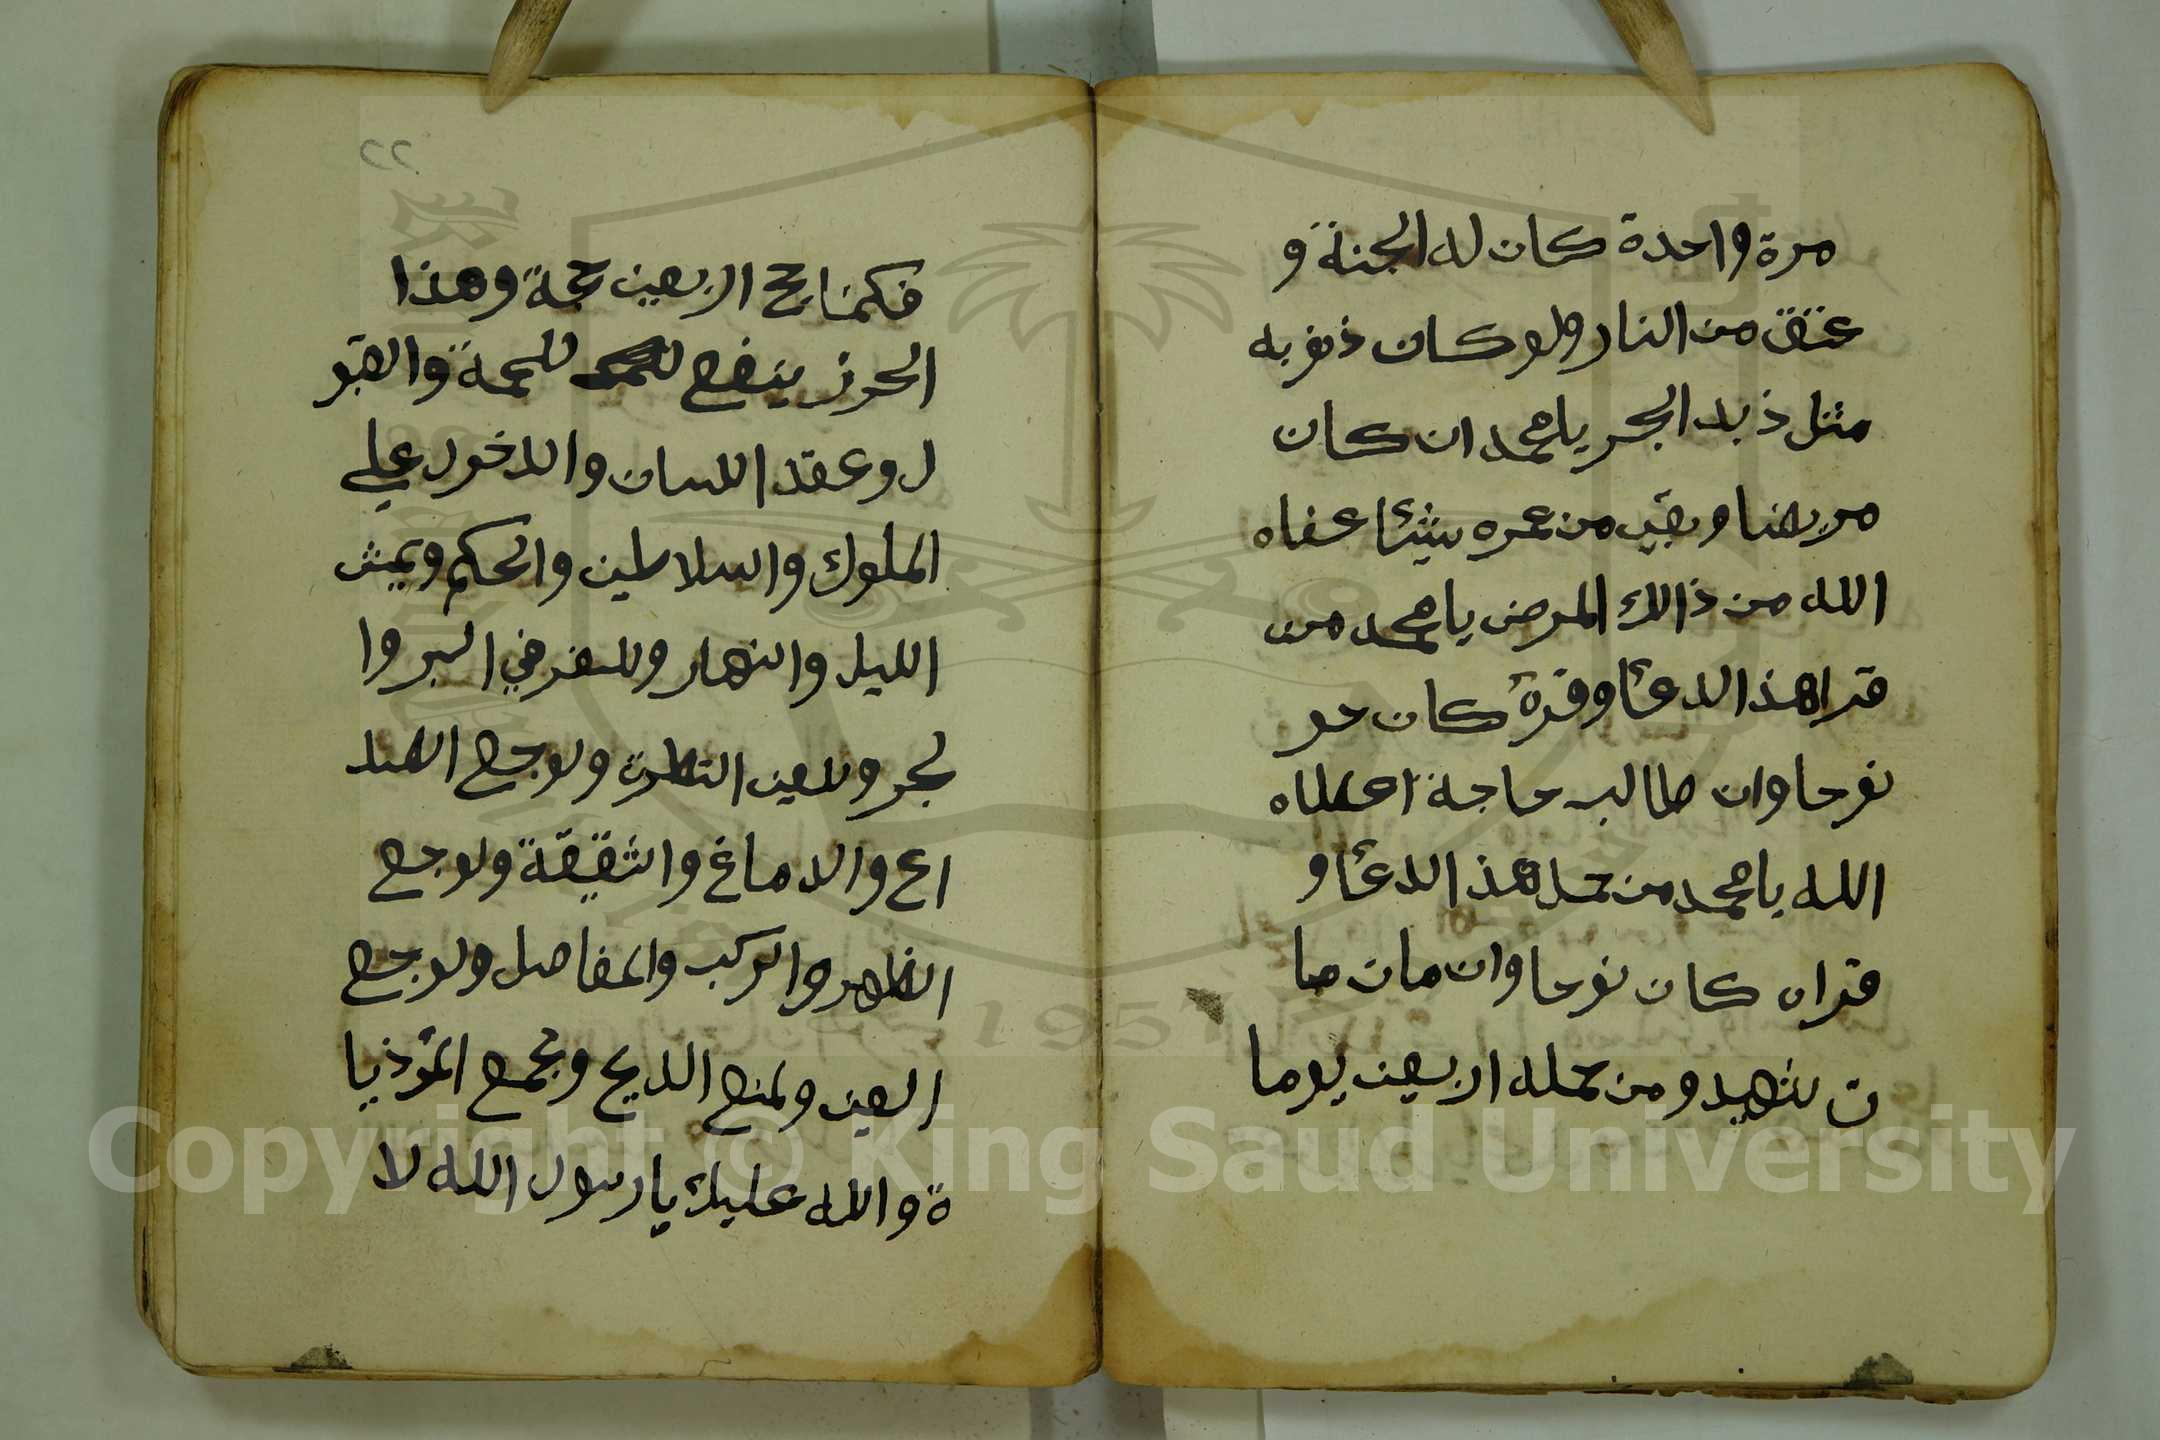 مرة واحدة كان له الجنة و
عتق من النار ولو كان ذنوبه
مثل ذبد البحر يا محمد ان كان
مريضا وبقي من عمره شيئا عفاه
الله من ذالك المرض يا محمد من
قرا هذا الدعا وقرئ كان حر
نوحا وان طالب حاجة اعطاه
الله يا محمد من حمل هذ الدعا و
قراه كان نوحا وان مات ما
ت شهيد ومن حمله اربعين يوما
22
فكمنا حج اربعين حجة وهذا
الحرز ينفع للحمة والقبو
ل وعقد اللسان والدخول علي
الملوك والسلاطين والحكم ويمش
الليل والنهار وللسفر في البر وا
لبحر وللعين النظرت ولوجع الصد
اع والدماغ والشقيقة ولوجع
الظهر والركب والمفاصل ولوجع
العين ولمنع الذبح وبجمع المؤذيا
ة والله عليك يا رسول الله لا
1957
Copyright © King Saud University